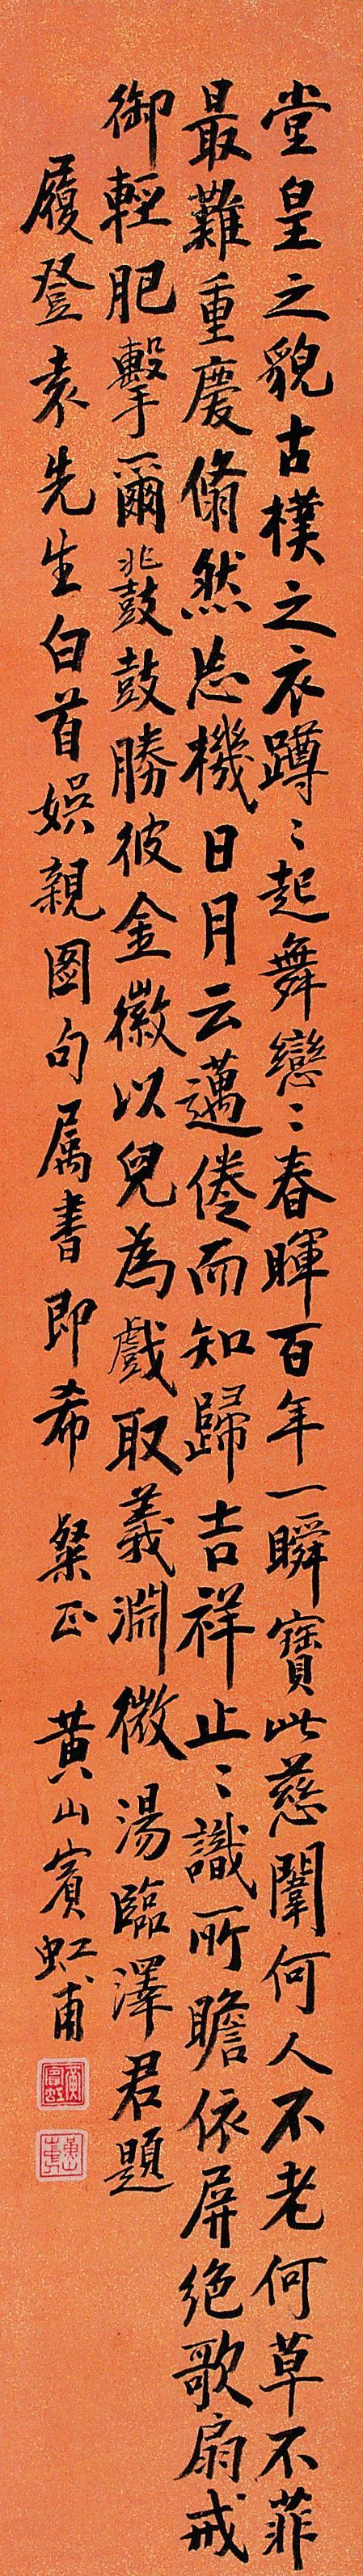 堂皇之貌古樸之衣蹲〻起舞戀〻春暉百年一瞬寶此慈闈何人不老何草不菲
最難重慶翛然忘機日月云邁倦而知歸吉祥止〻識所瞻依屏絕歌扇戒
御輕肥擊爾鼗鼓勝彼金徽以兒為戲取義淵微 湯臨澤君題
履登袁先生白首娛親圖句屬書即希 粲正 黃山賓虹甫